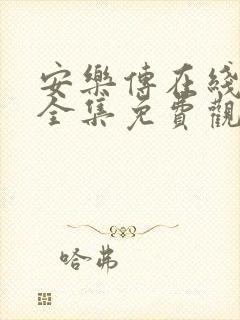 安樂傳在綫
全集免費觀
哈弗